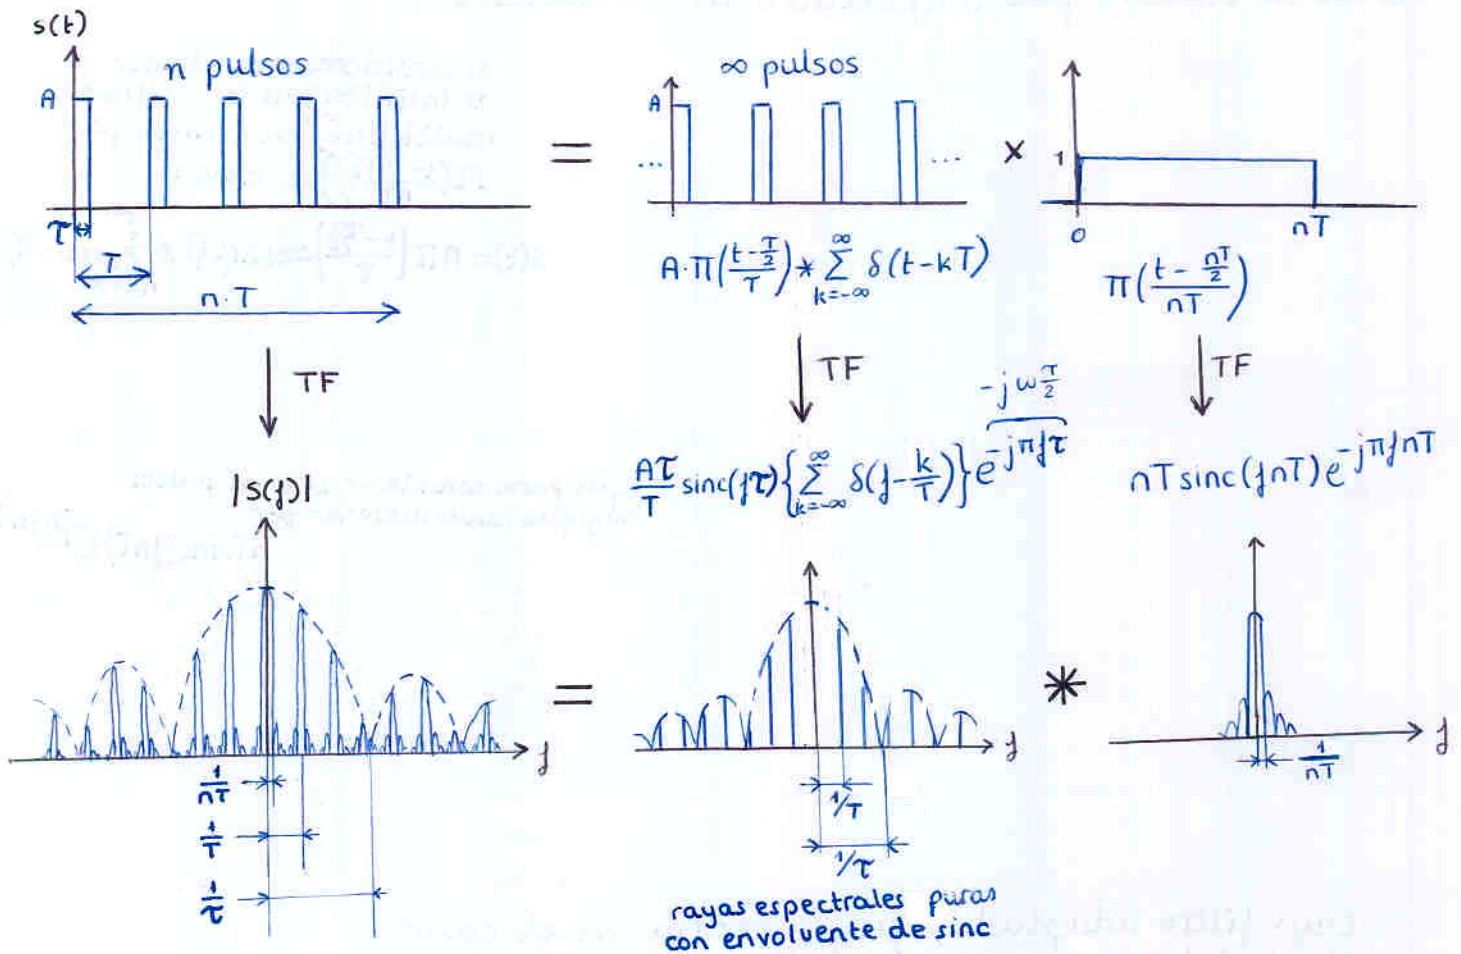 s(t)
n pulsos
A
τ
T
n·T
=
∞ pulsos
A
...
...
×
1
0
nT
A·Π((t-τ/2)/τ) * ∑_{k=-∞}^{∞} δ(t-kT)
Π((t - nT/2)/nT)
TF
TF
TF
-jω τ/2
Aτ/T sinc(fτ){∑_{k=-∞}^{∞} δ(f-k/T)}e^{-jπfτ}
nT sinc(fnT)e^{-jπfnT}
|S(f)|
f
=
f
*
f
1/nT
1/T
1/τ
1/T
1/τ
1/nT
rayas espectrales puras
con envolvente de sinc